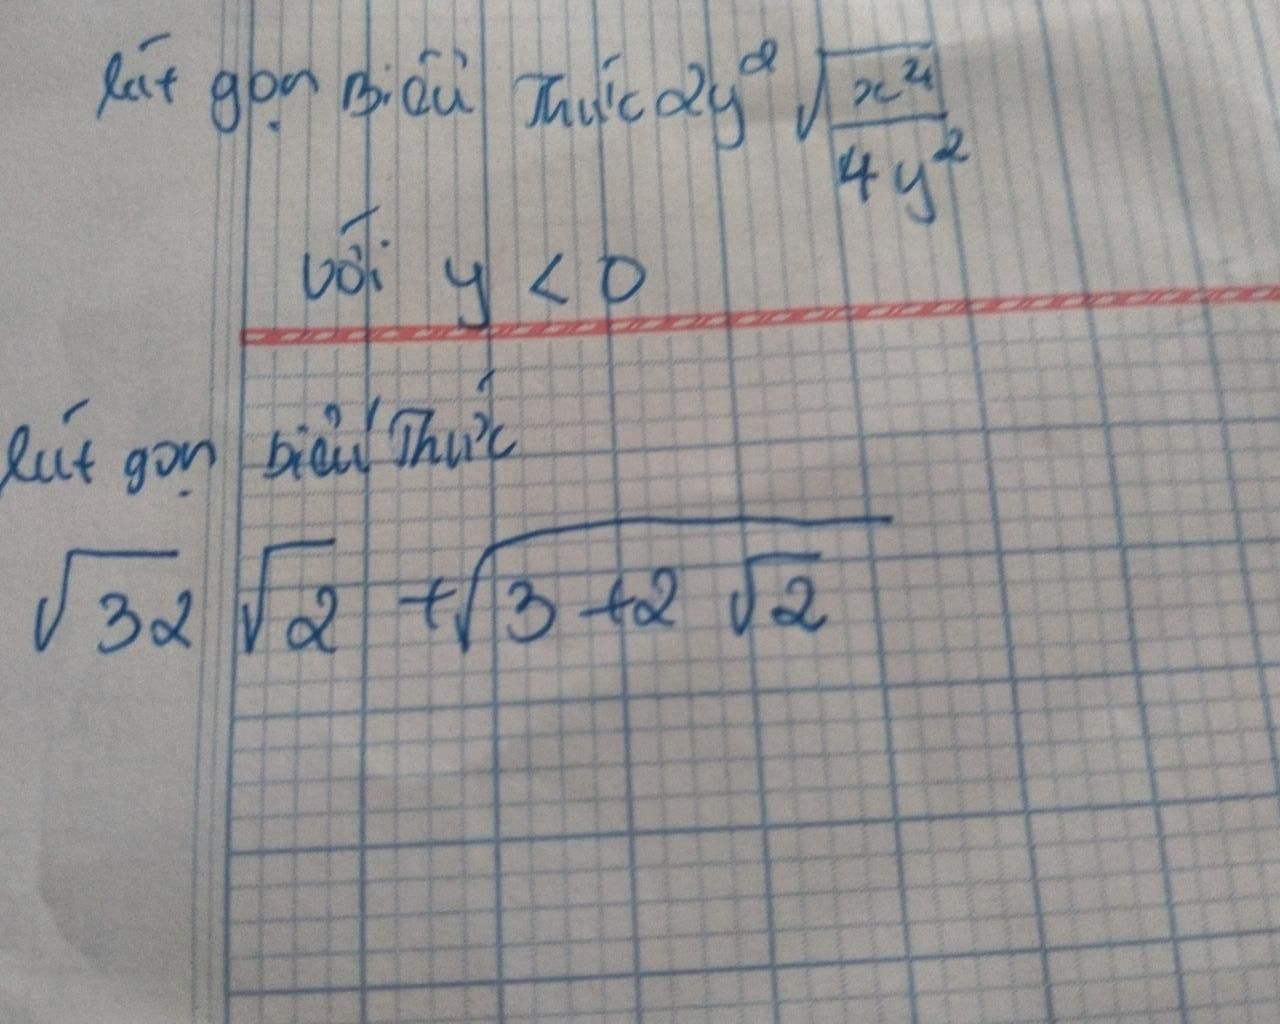 Rút gọn Biểu Thức 2y² √(x⁴/4y²)
với y < 0
Rút gọn biểu Thức
√32 √2 + √(3 + 2 √2)